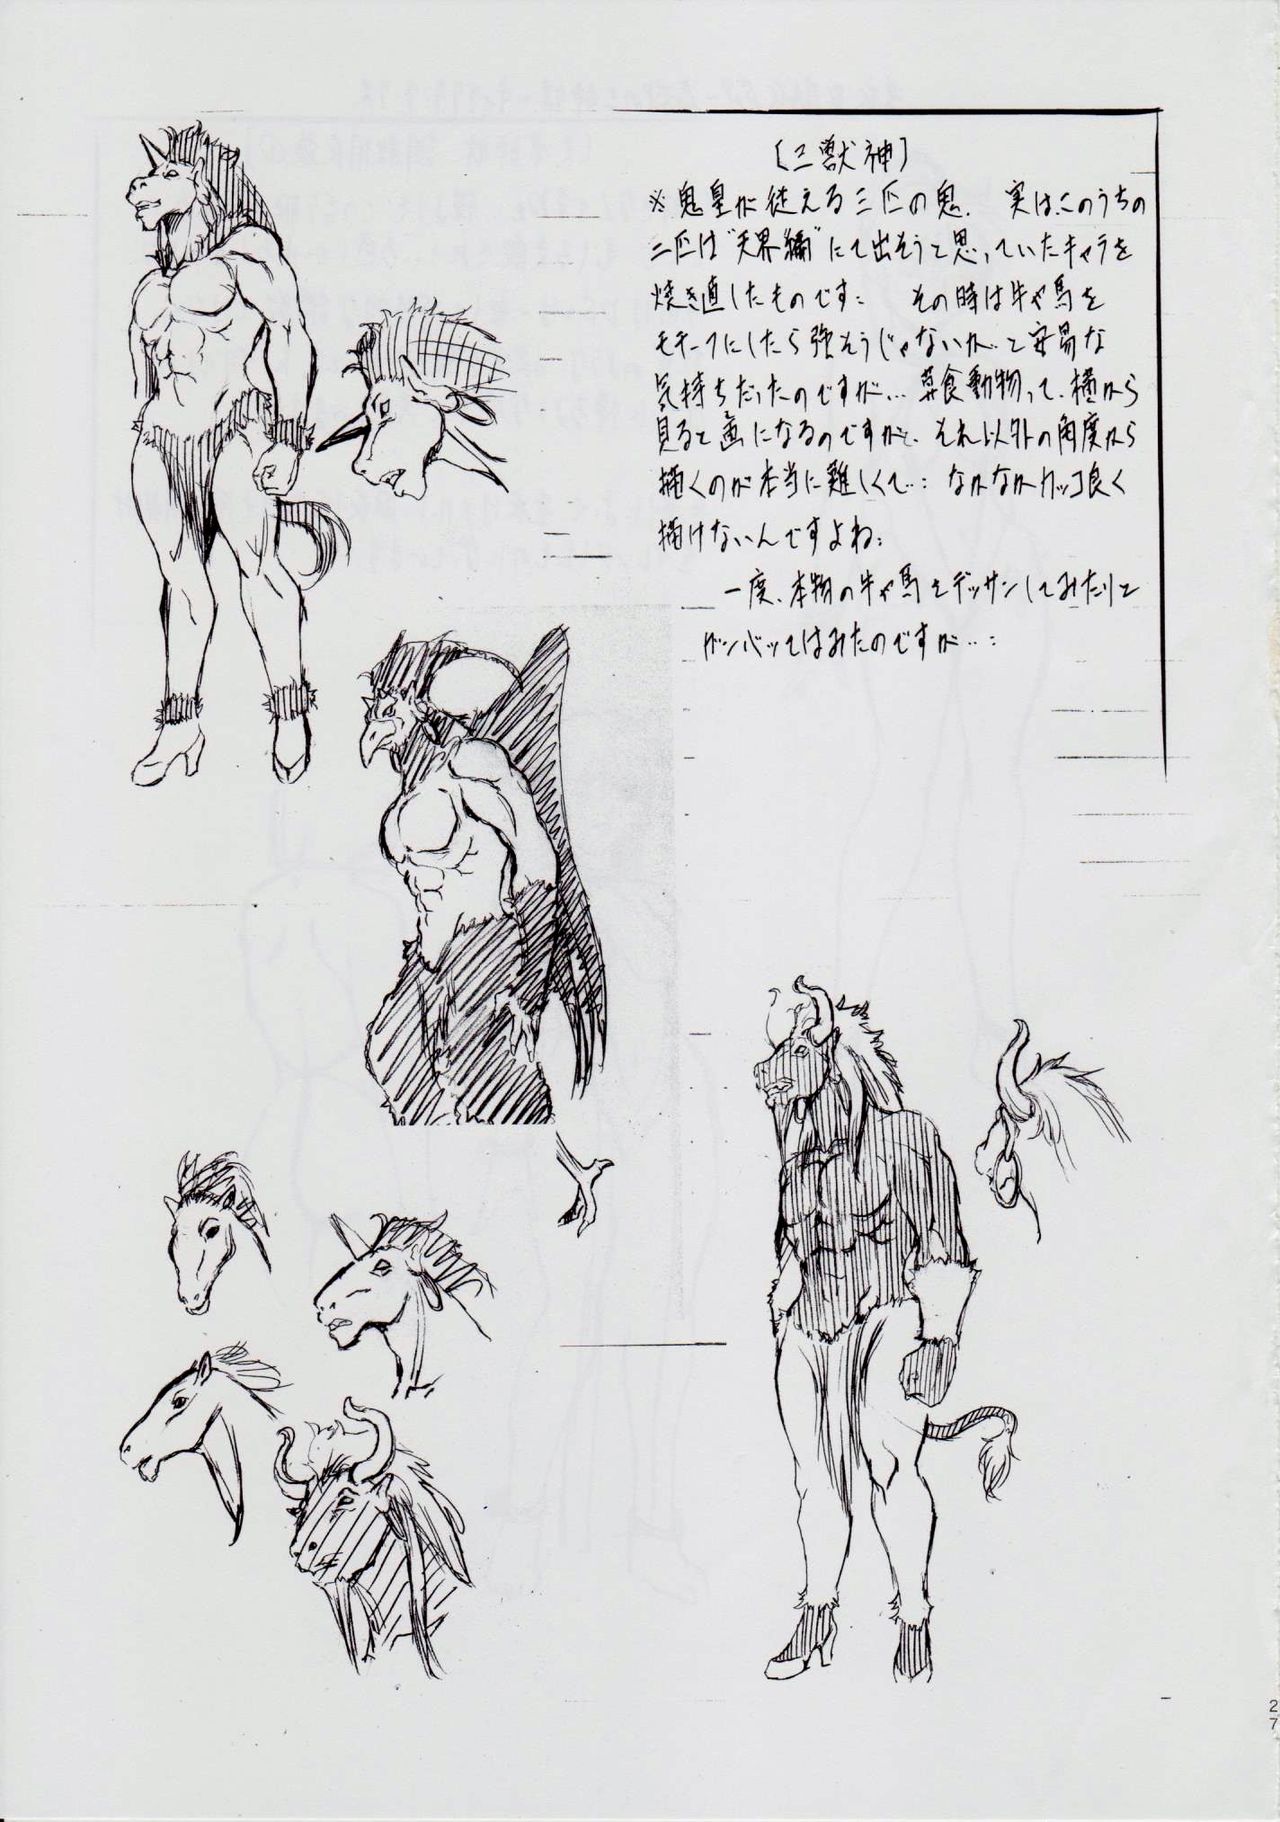 [三獣神]
※鬼皇が従える三匹の鬼. 実は、このうちの
二匹は"天界編"にて出そうと思っていたキャラを
焼き直したものです… その時は牛や馬を
モチーフにしたら強そうじゃないか…と安易な
気持ちだったのですが… 草食動物って、横から
見ると画になるのですがど、それ以外の角度から
描くのが本当に難しくて… なかなかカッコ良く
描けないんですよね…
一度、本物の牛や馬をデッサンしてみたりと
ガンバッてはみたのですが…
27